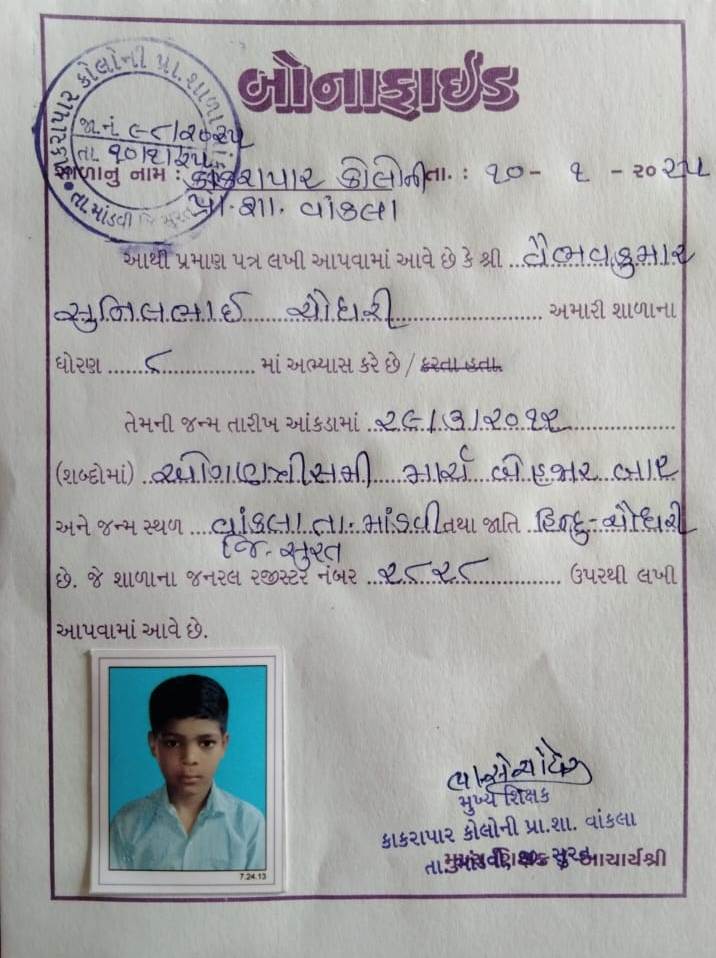 બોનાફાઈડ
કાકરાપાર કોલોની પ્રા. શાળા
તા. માંડવી જિ. સુરત
જા.નં ૯૮/૨૦૨૫
તા. ૧૦/૧/૨૫
શાળાનુ નામ : કાકરાપાર કોલોની તા. : ૧૦ - ૧ - ૨૦૨૫
પ્રા. શા. વાંકલા
આથી પ્રમાણ પત્ર લખી આપવામાં આવે છે કે શ્રી વૈભવકુમાર
સુનિલભાઈ ચૌધરી અમારી શાળાના
ધોરણ ૮ માં અભ્યાસ કરે છે / કરતા હતા.
તેમની જન્મ તારીખ આંકડામાં ૨૯/૩/૨૦૧૨
(શબ્દોમાં) ઓગણત્રીસમી માર્ચ બે હજાર બાર
અને જન્મ સ્થળ વાંકલા તા. માંડવી તથા જાતિ હિન્દુ-ચૌધરી
જિ. સુરત
છે. જે શાળાના જનરલ રજીસ્ટર નંબર ૨૮૨૮ ઉપરથી લખી
આપવામાં આવે છે.
7.24.13
મુખ્ય શિક્ષક
કાકરાપાર કોલોની પ્રા.શા. વાંકલા
તા. માંડવી, જી. સુરત
આચાર્યશ્રી